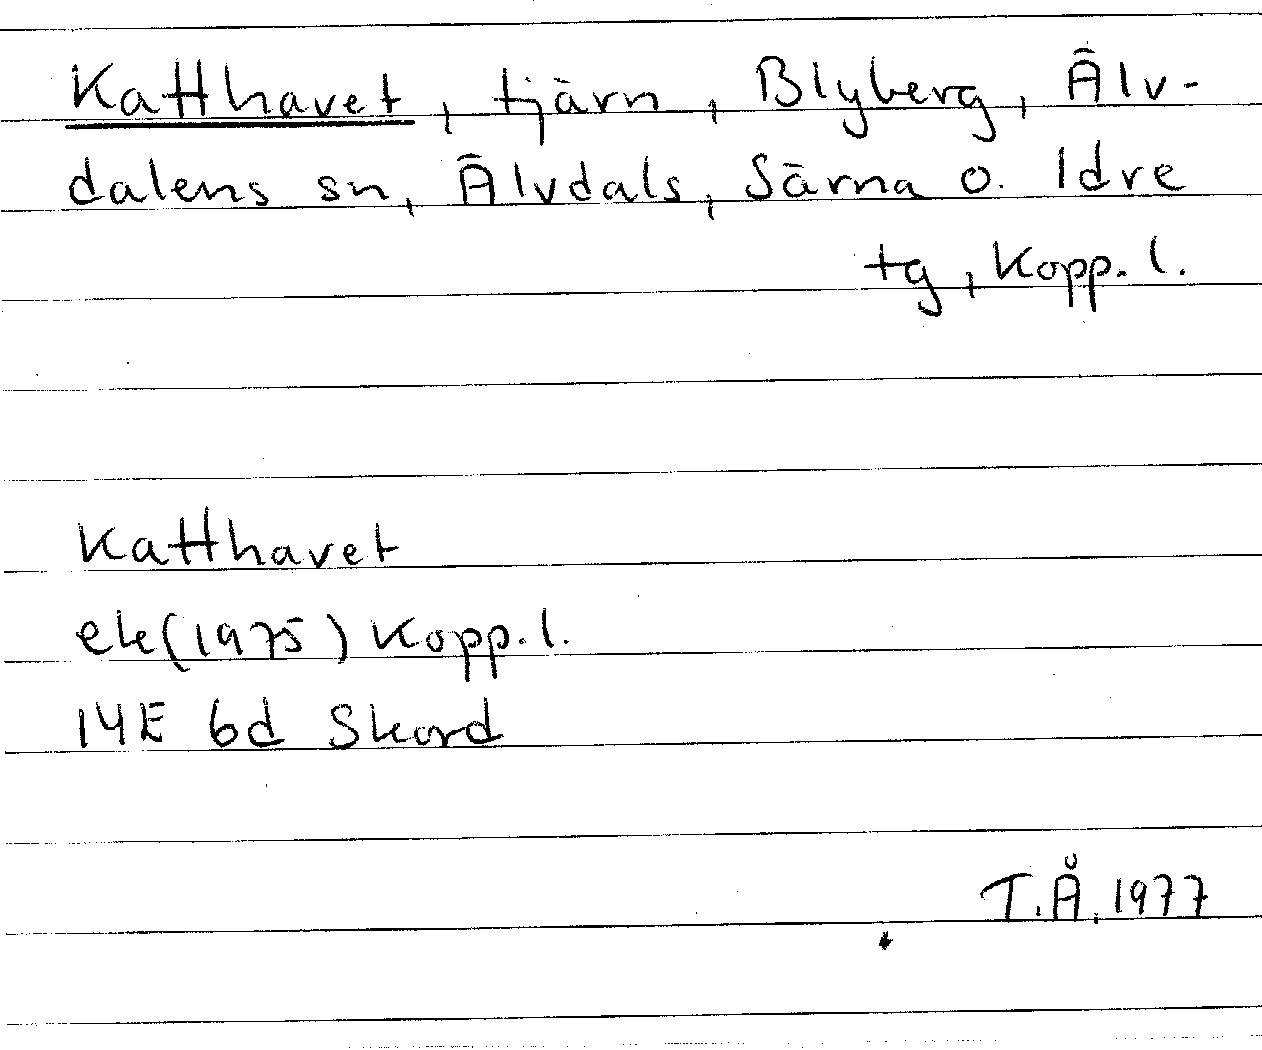 Katthavet, tjärn, Blyberg, Älv-
dalens sn, Älvdals, Särna o. Idre
tg, Kopp. l.
Katthavet
ek(1975) Kopp. l.
14E 6d Skord
T.Å. 1977